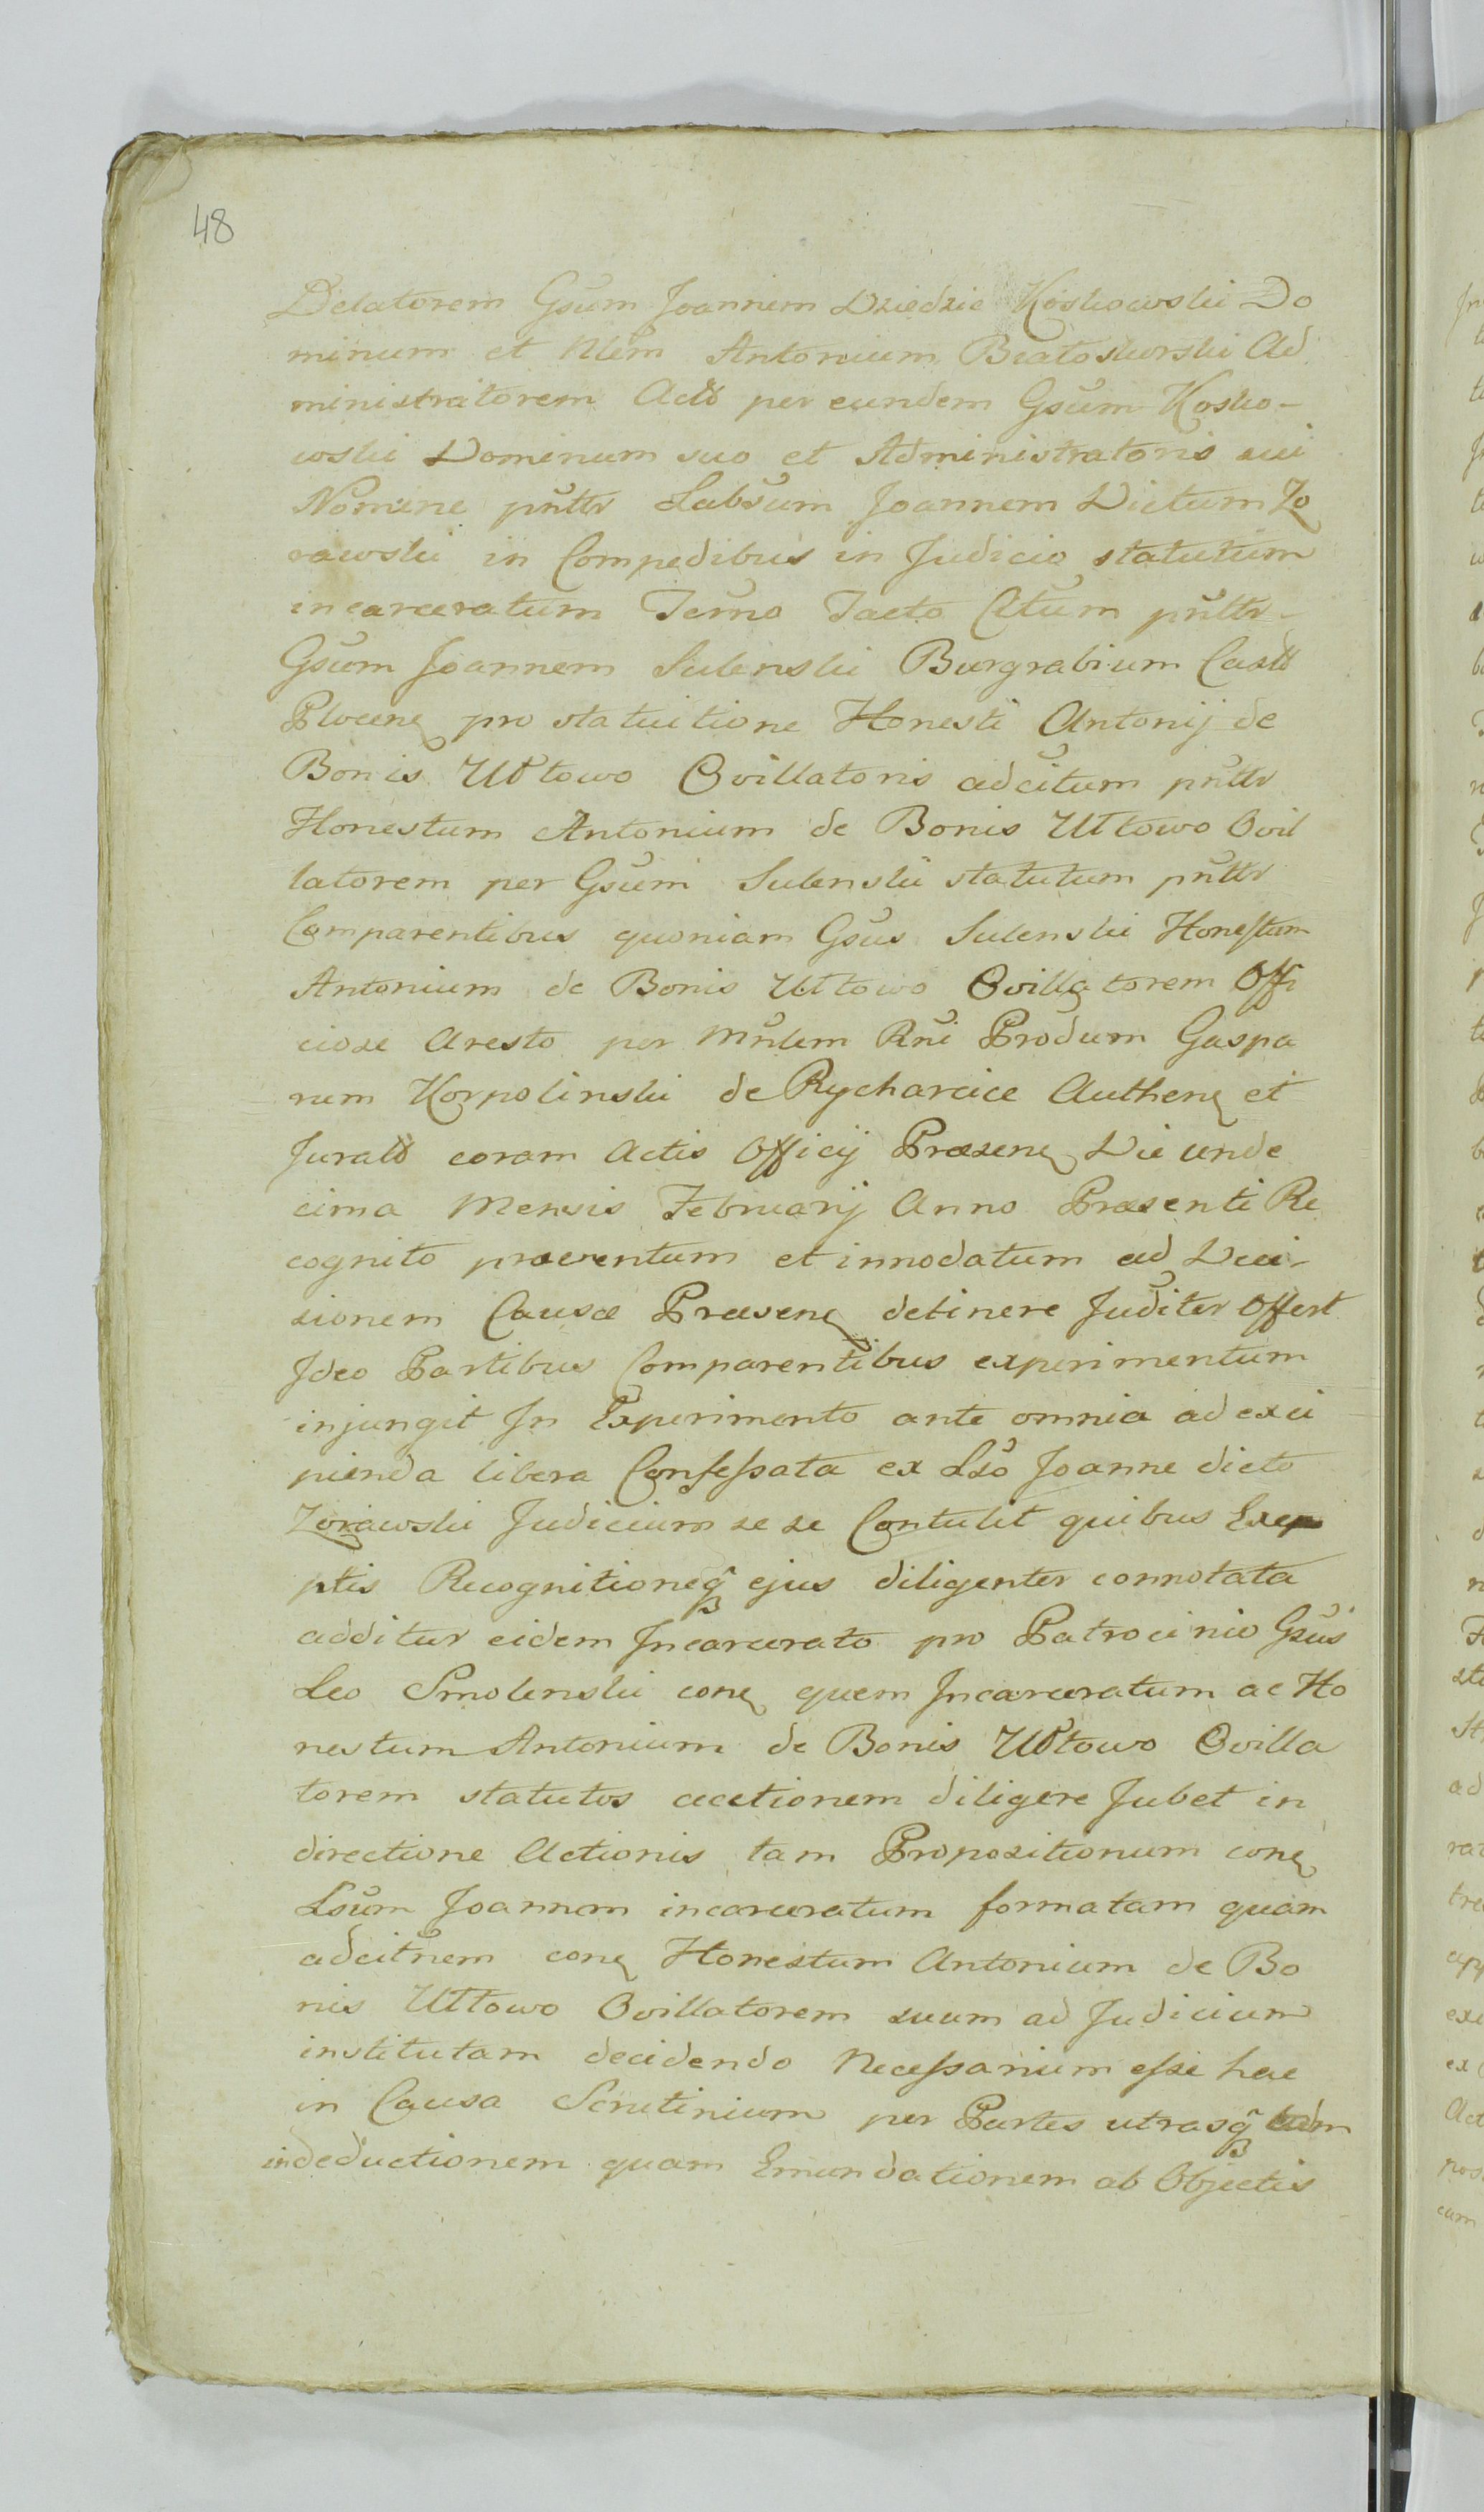 48
Delatorem Gsum Joannem Dziedzic Koskowski Do
minum et Nlem Antonium Białoskorski Ad
ministratorem Actū per eundem Gsum Kosko-
wski Dominum suo et Administratoris sui
Nomine pnttr Labsum Joannem Dictum Zo
rawski in Compedibus in Judicio statutum
incarceratum Termo Tacto Citum pnttr-
Gsum Joannem Sulenski Burgrabium Castr
Plocens pro statuitione Honesti Antonij de
Bonis Ułtowo Ovillatoris adcitum pnttr
Honestum Antonium de Bonis Ułtowo Ovil
latorem per Gsum Sulenski statutum pnttr
Comparentibus quoniam Gsus Sulenski Honestum
Antonium de Bonis Ułtowo Ovillatorem Offi
ciose Aresto per Mnlem Rni Produm Gaspa
rum Korpolinski de Rycharcice Authen et
Jurato coram Actis Officij Præsen Die unde
cima Mensis Februarij Anno Præsenti Re
cognito præventum et innodatum ad Deci-
sionem Causæ Præsen detinere Juditer Offert
Ideo Partibus Comparentibus experimentum
injungit In Experimento ante omnia ad exci
pienda libera Confessata ex Lso Joanne dicto
Zorawski Judicium se se Contulit quibus Excep
ptis Recognitioneq ejus diligenter connotata
additur eidem Incarcerato pro Patrocinio Gsus
Leo Smolenski con quem Incarceratum ac Ho
nestum Antonium de Bonis Ułtowo Ovilla
torem statutos acctionem diligere Jubet in
directione Actionis tam Propositionum con
Lsum Joannem incarceratum formatam quam
adcitnem con Honestum Antonium de Bo
nis Ułtowo Ovillatorem suum ad Judicium
institutam decidendo Necessarium esse hac
in Causa Scrutinium per Partes utrasq tam
in deductionem quam Emundationem ab Objectis